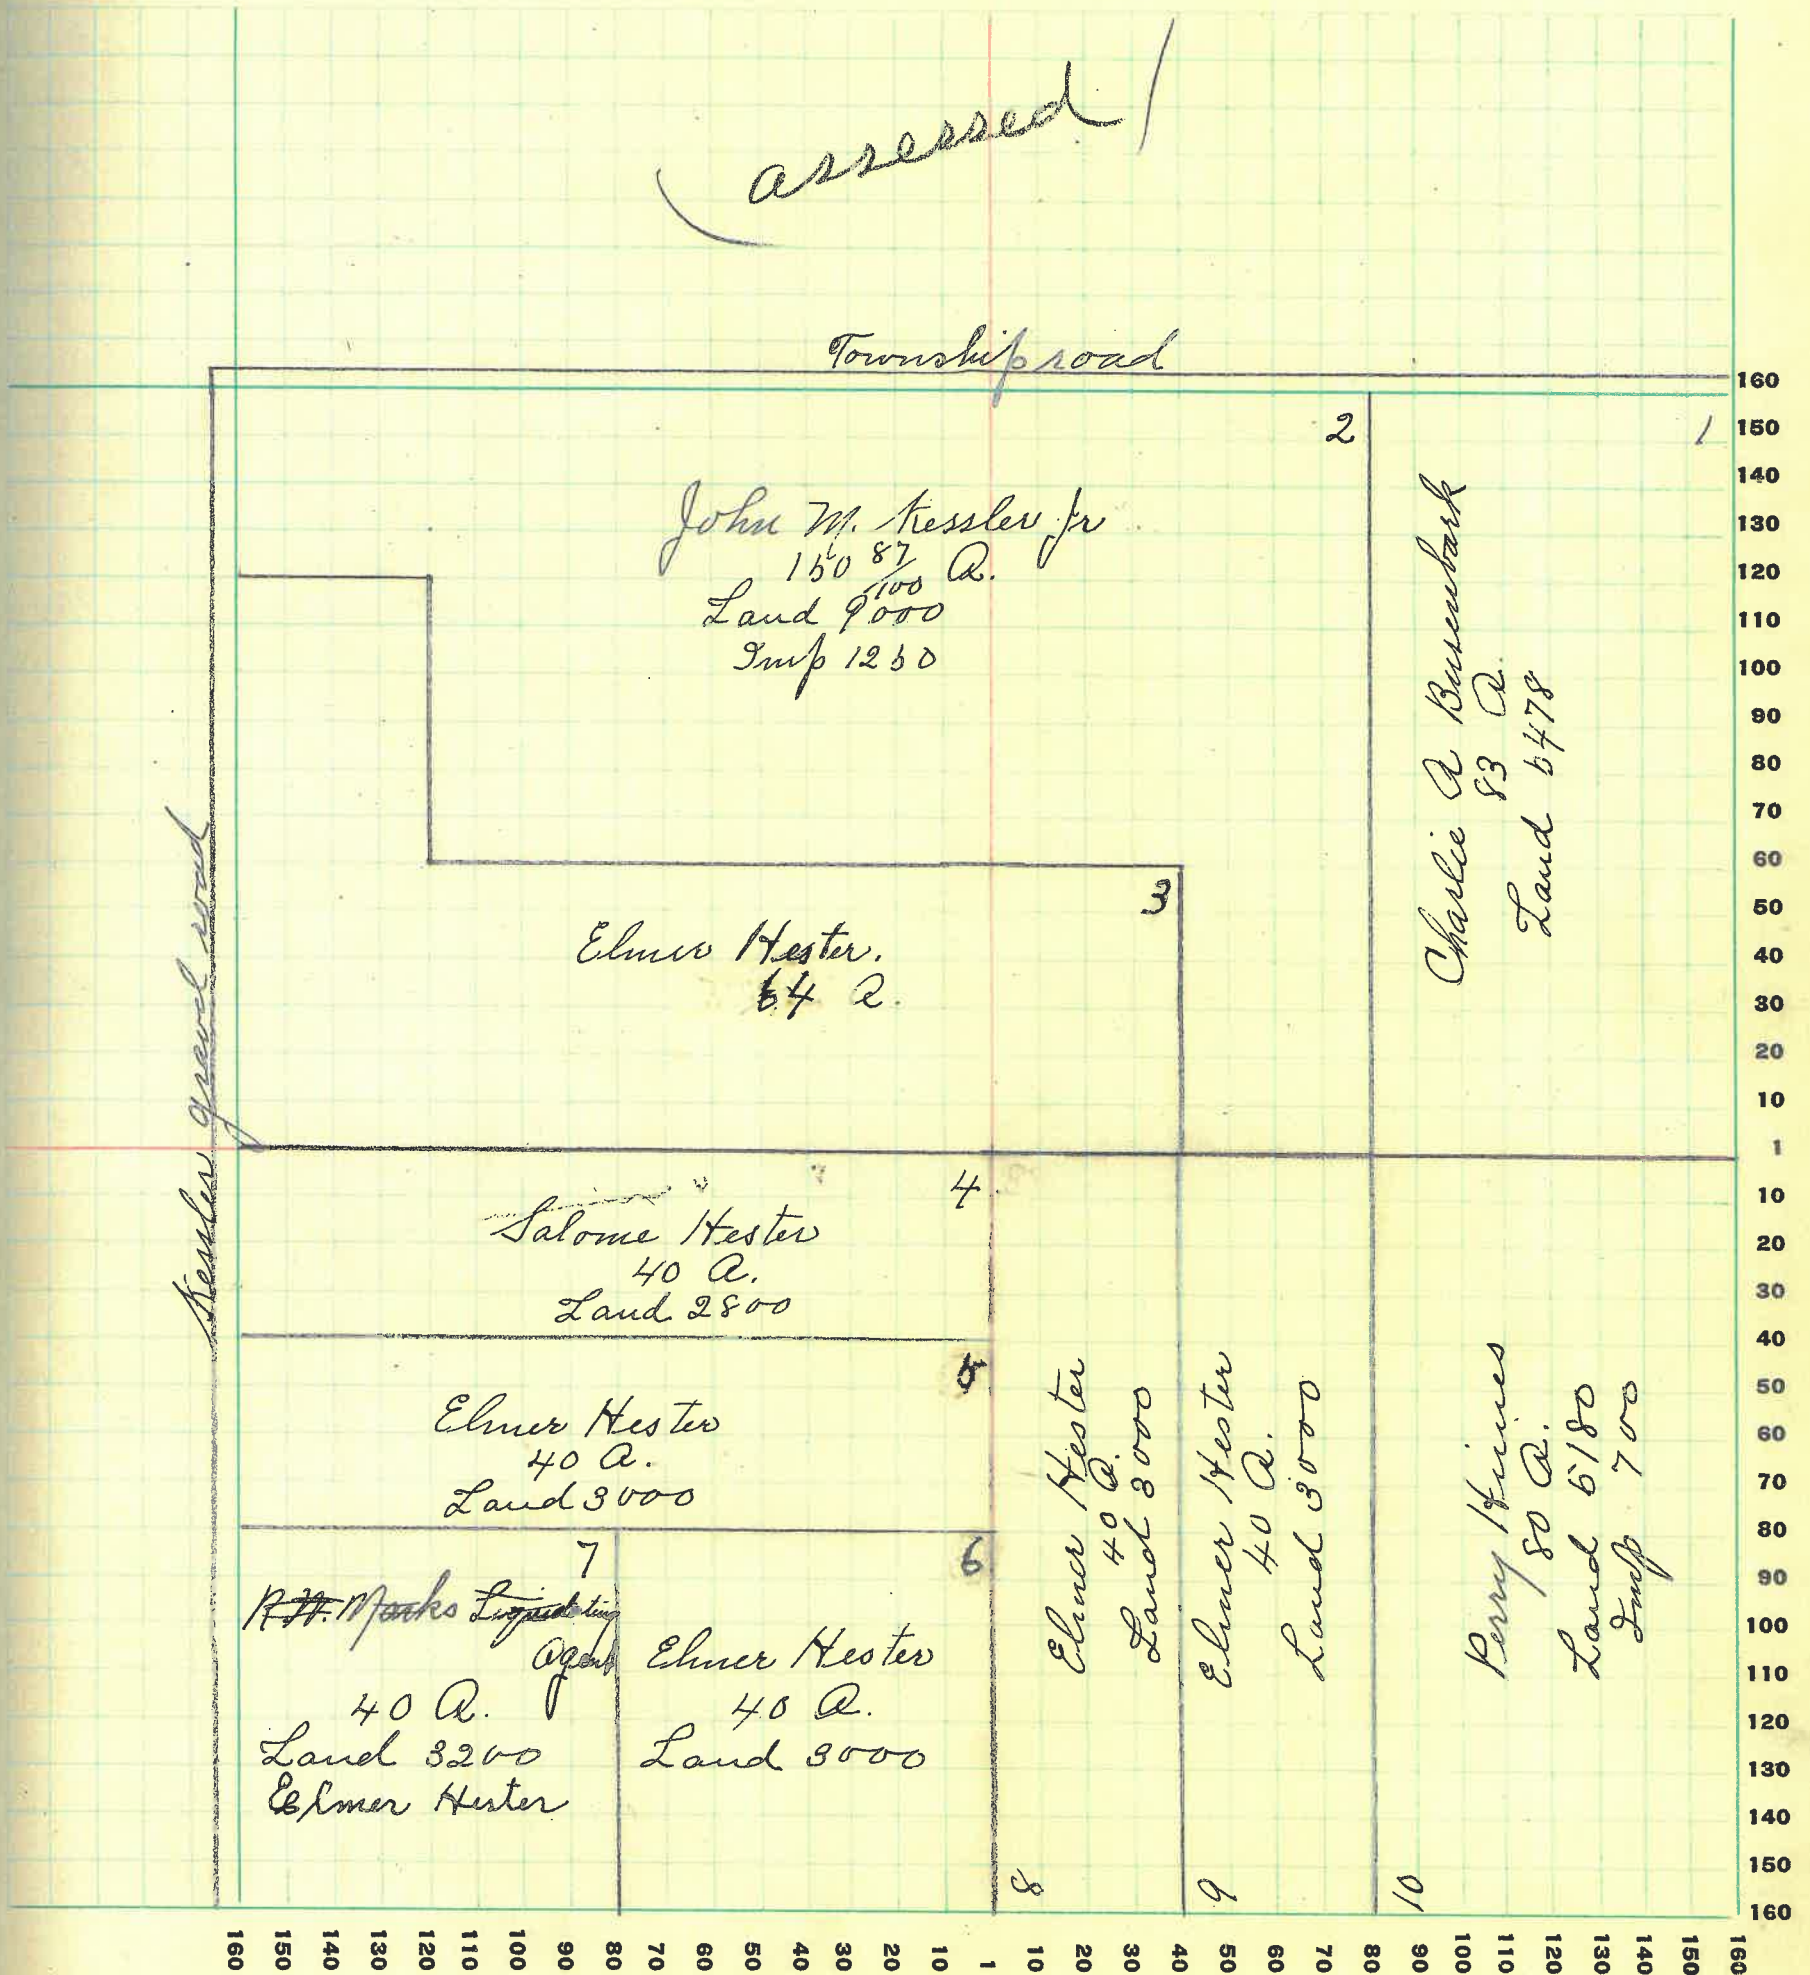 assessed
Township road
Kessler gravel road
2
John M. Kessler Jr
150 87/100 A.
Land 9000
Imp 1250
1
Charlie A Busenbark
83 A.
Land 5478
3
Elmer Hester.
64 A.
4
Salome Hester
40 A.
Land 2800
5
Elmer Hester
40 A.
Land 3000
7
Marks Liquidating
Agent
40 A.
Land 3200
Elmer Hester
6
Elmer Hester
40 A.
Land 3000
8
Elmer Hester
40 A.
Land 3000
9
Elmer Hester
40 A.
Land 3000
10
Perry Himes
80 A.
Land 5180
Imp 700
160
150
140
130
120
110
100
90
80
70
60
50
40
30
20
10
1
10
20
30
40
50
60
70
80
90
100
110
120
130
140
150
160
160 150 140 130 120 110 100 90 80 70 60 50 40 30 20 10 1 10 20 30 40 50 60 70 80 90 100 110 120 130 140 150 160